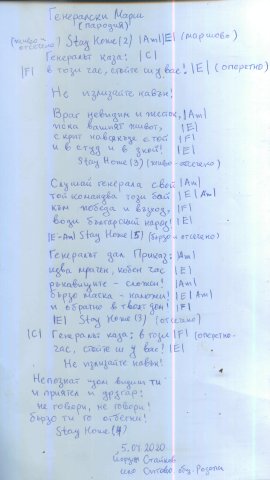 Генералски Марш
(пародия)
(живо и отсечено) Stay Home (2) |Am|E| (маршово)
Генералът каза: |C|
|F| в този час, стойте си у вас! |E| (оперетно)
Не излизайте навън!
Враг невидим и жесток, |Am|
иска вашият живот, |E|
с крит навсякъде е той |F|
и в студ и в зной! |E|
Stay Home (3) (живо-отсечено)
Слушай генерала свой |Am|
той командва този бой |E| |Am|
към победа и възход, |F|
води българският народ! |E|
|E-Am| Stay Home (5) (бързо и отсечено)
Генералът дал Приказ: |Am|
идва мрачен, кобен час |E|
ръкавиците - сложи! |Am|
бързо маска - наложи! |E| |Am|
и обратно в твоя дом! |F|
|E| Stay Home (3) (отсечено)
|C| Генералът каза: в този |F| (оперетно-
час, стойте си у вас! |E|
Не излизайте навън!
Непознат щом видиш ти
и приятел и другар:
не говори, не говори!
бързо ти го отбегни!
Stay Home (4)
5.04.2020
Йордан Стайков
село Ситово общ. Родопи